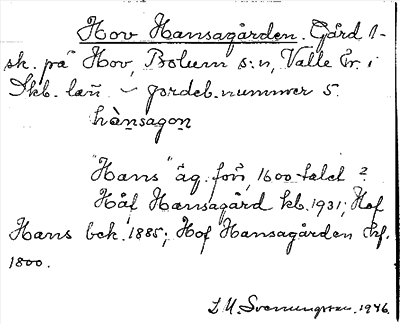 Hov Hansagården. Gård 1-
sk. på Hov, Bolum s:n, Valle hr. i
Skb. län - jordeb.nummer 5.
hànsagon
"Hans" äg. förr, 1600-talet?
Håf Hansagård kb. 1931; Hof
Hans bck. 1885; Hof Hansagården
1800.
L. M. Svenungsson. 1946.